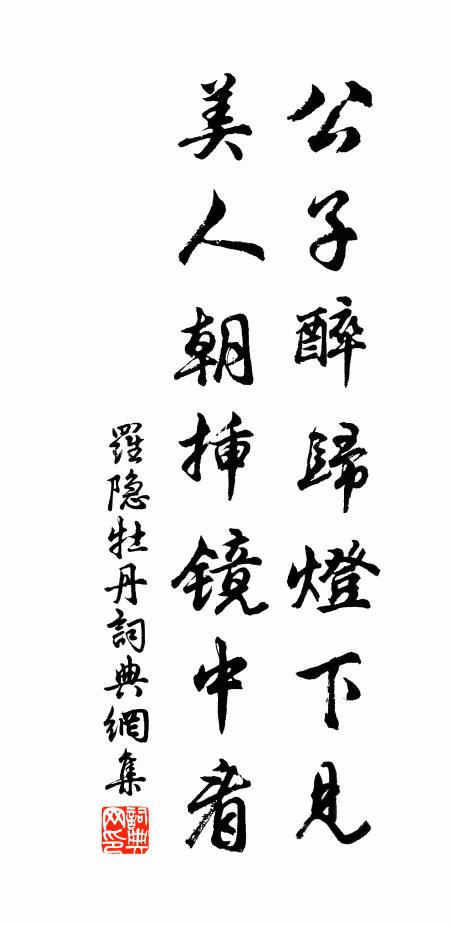 公子醉歸燈下見
美人朝插镜中看
羅隐牡丹詞典網集
詞典
网印